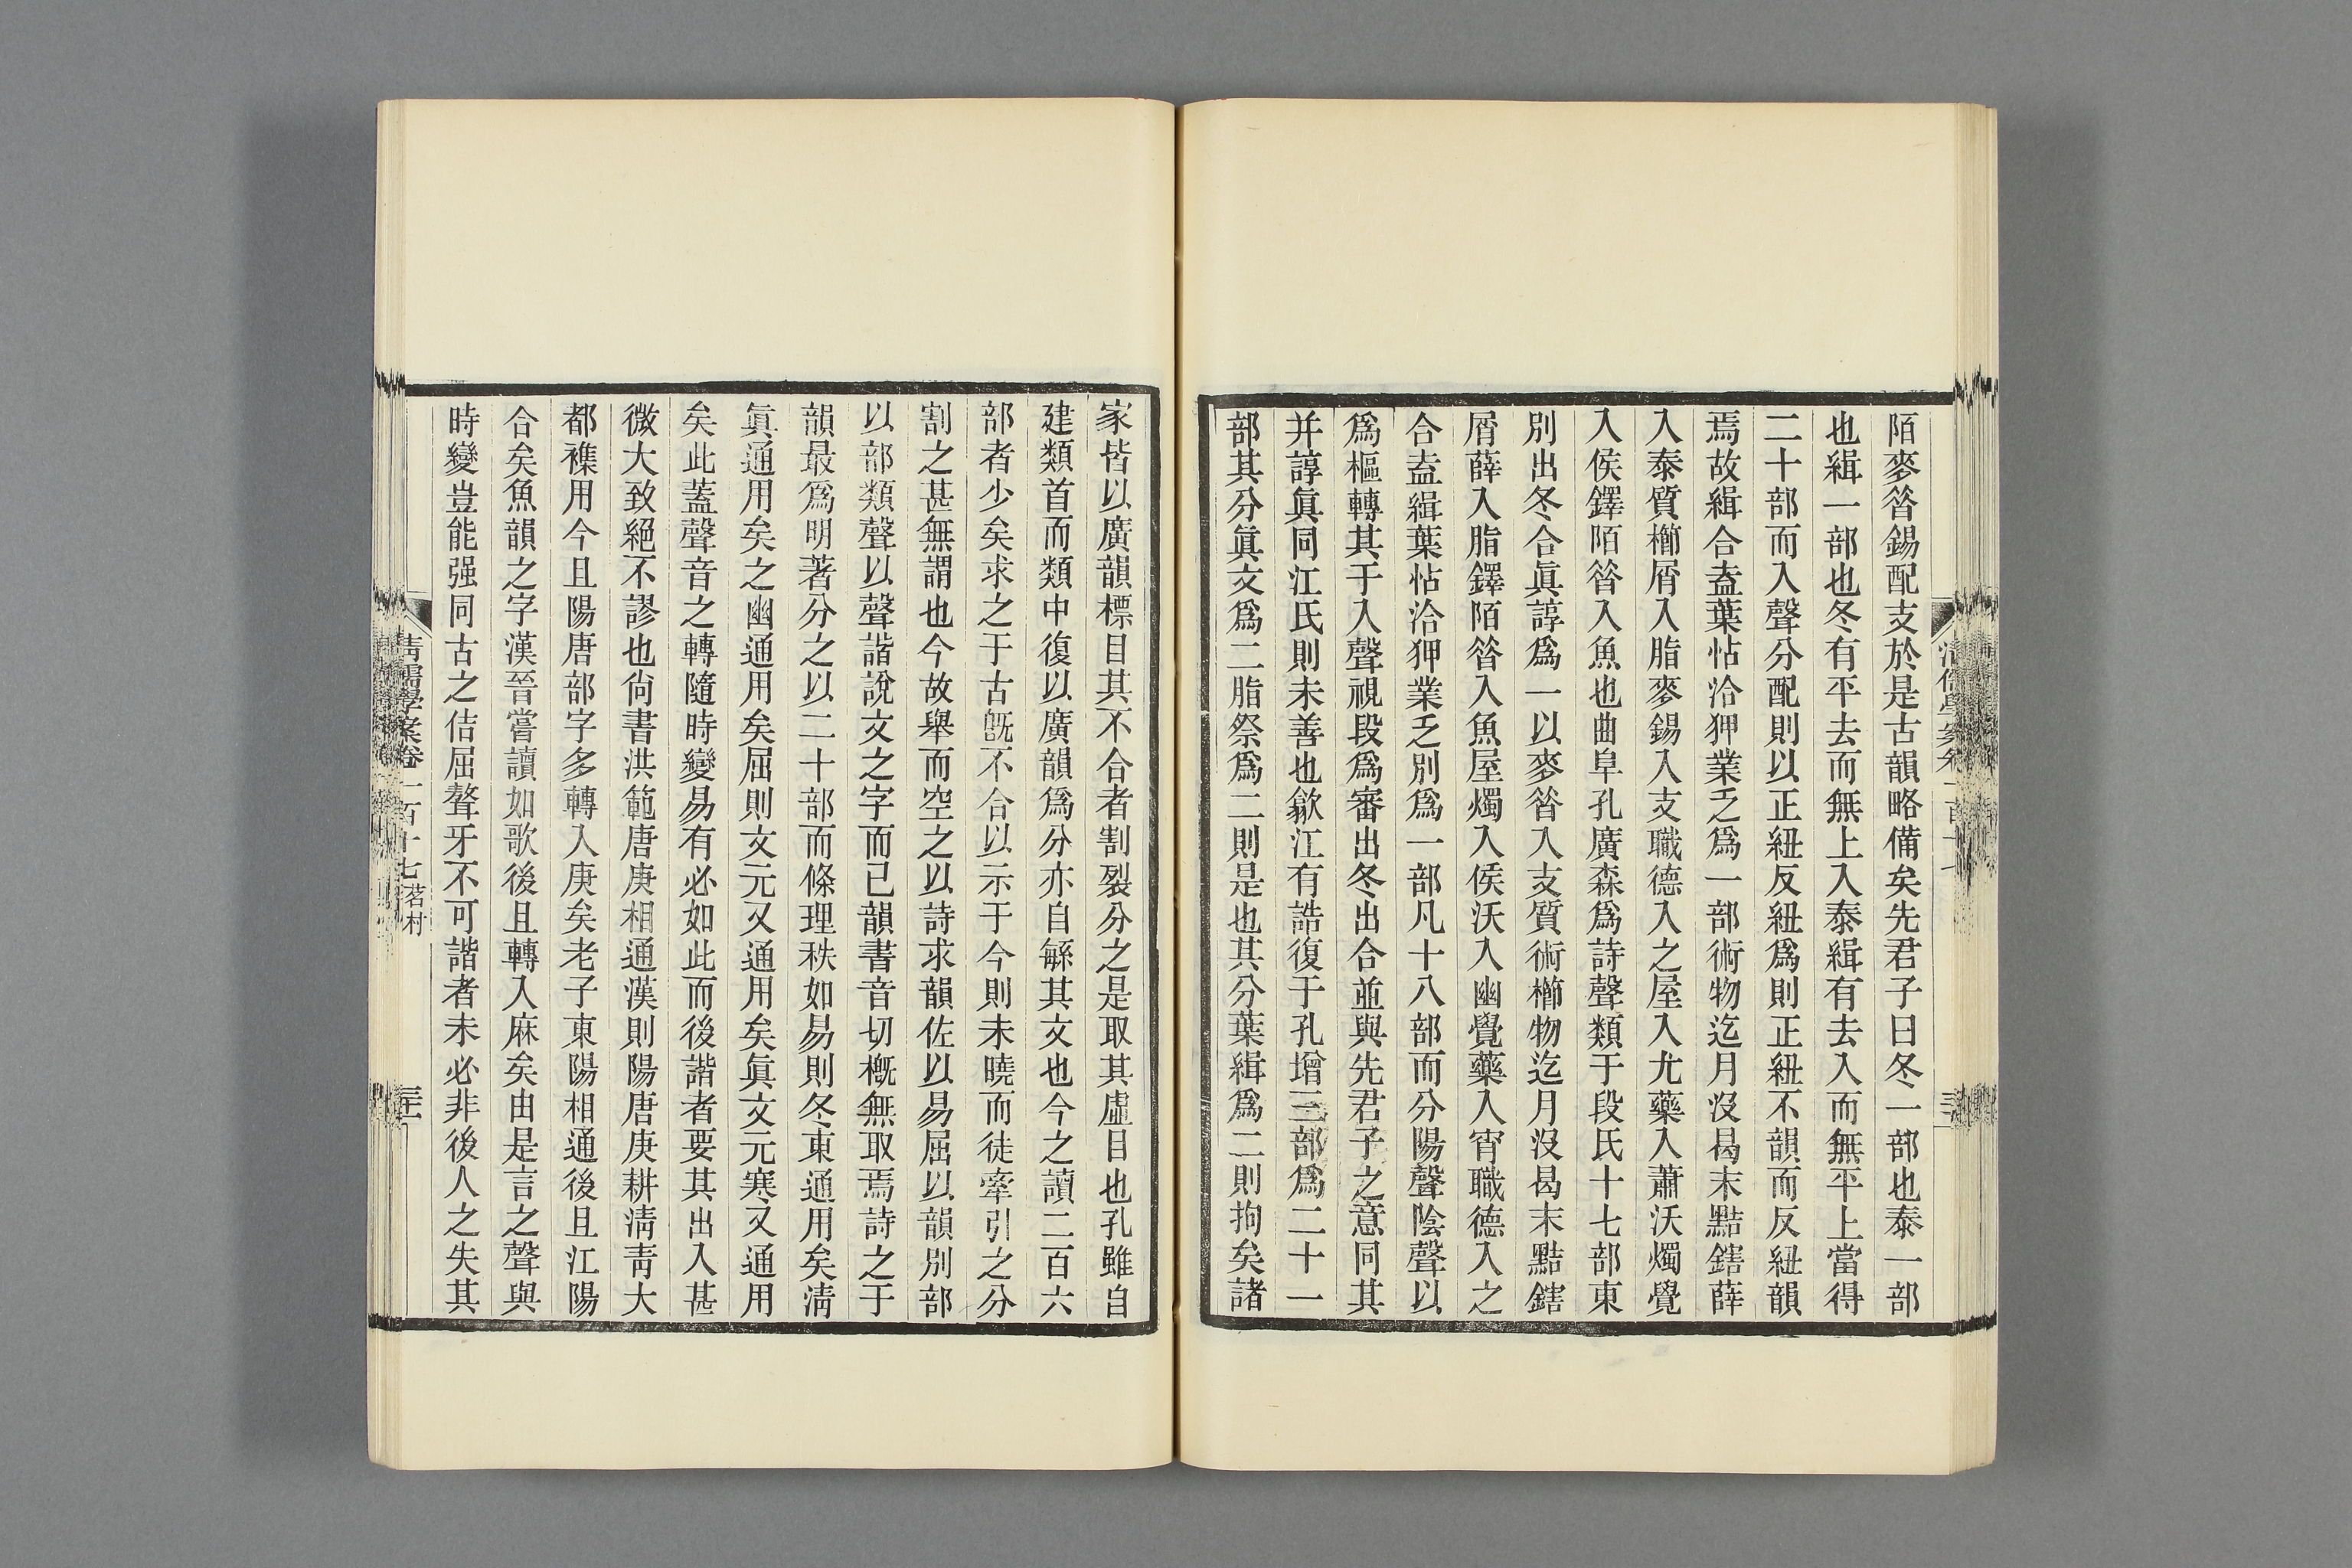 陌麥昝錫配支於是古韻略備矣先君子曰冬一部也泰一部
也緝一部也冬有平去而無上入泰緝有去入而無平上當得
二十部而入聲分配則以正紐反紐爲則正紐不韻而反紐韻
焉故緝合盍葉怗洽狎業乏爲一部術物迄月沒曷末黠鎋薛
入泰質櫛屑入脂麥錫入支職德入之屋入尤藥入蕭沃燭覺
入侯鐸陌昝入魚也曲阜孔廣森爲詩聲類于段氏十七部東
別出冬合眞諄爲一以麥昝入支質術櫛物迄月沒曷末黠鎋
屑薛入脂鐸陌昝入魚屋燭入侯沃入幽覺藥入宵職德入之
合盍緝葉怗洽狎業乏別爲一部凡十八部而分陽聲陰聲以
爲樞轉其于入聲視段爲審出冬出合並與先君子之意同其
并諄眞同江氏則未善也歙江有誥復于孔增三部爲二十一
部其分眞文爲二脂祭爲二則是也其分葉緝爲二則拘矣諸
家皆以廣韻標目其不合者割裂分之是取其虛目也孔雖自
建類首而類中復以廣韻爲分亦自緐其文也今之讀二百六
部者少矣求之于古旣不合以示于今則未曉而徒牽引之分
割之甚無謂也今故舉而空之以詩求韻佐以易屈以韻別部
以部類聲以聲諧說文之字而已韻書音切槪無取焉詩之于
韻最爲明著分之以二十部而條理秩如易則冬東通用矣淸
眞通用矣之幽通用矣屈則文元又通用矣眞文元寒又通用
矣此蓋聲音之轉隨時變易有必如此而後諧者要其出入甚
微大致絕不謬也尙書洪範唐庚相通漢則陽唐庚耕淸靑大
都襍用今且陽唐部字多轉入庚矣老子東陽相通後且江陽
合矣魚韻之字漢晉嘗讀如歌後且轉入麻矣由是言之聲與
時變豈能强同古之佶屈聱牙不可諧者未必非後人之失其
淸儒學案卷一百十七 茗村